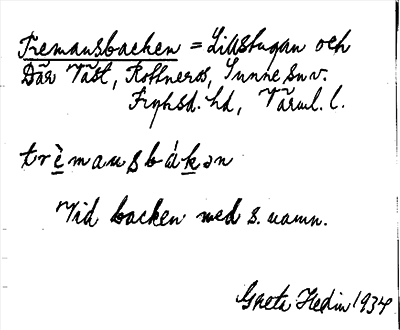 Tremansbacken = Lillstugan och
Där Väst, Rottneros, Sunne sn v.
Fryksd. hd, Värml. l.
trèmansbákən
Vid backen med s. namn.
Greta Hedin 1934